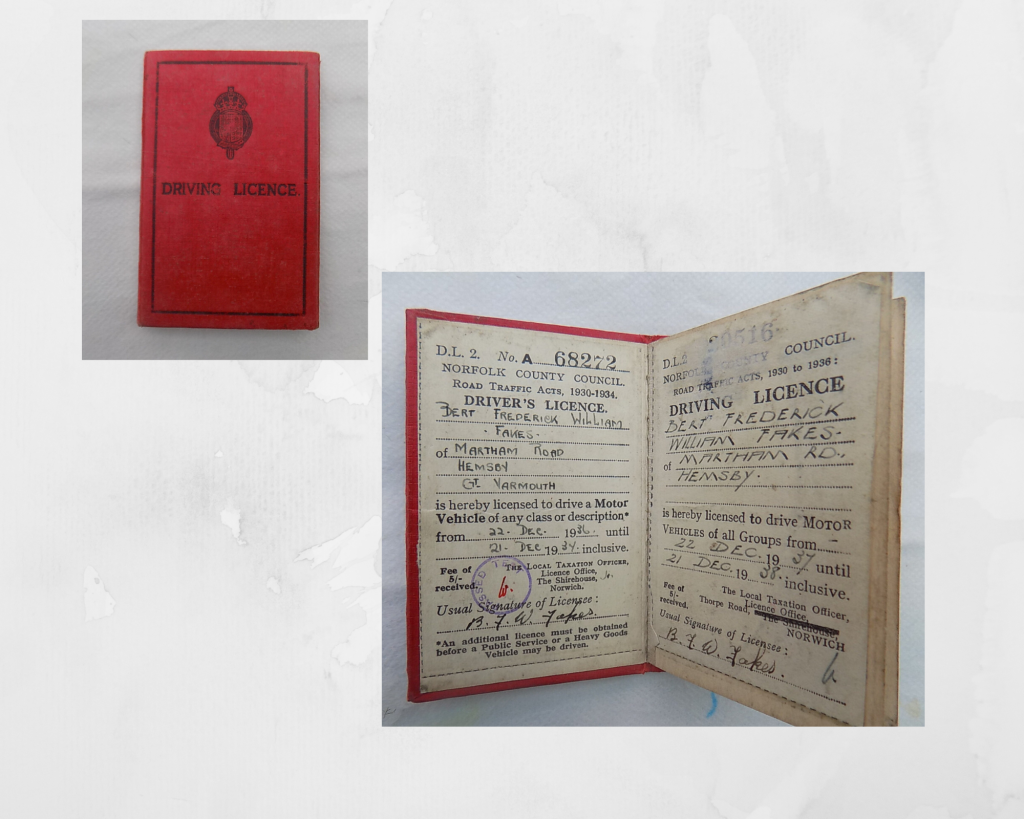 DRIVING LICENCE
D.L. 2. No. A 68272
NORFOLK COUNTY COUNCIL.
ROAD TRAFFIC ACTS, 1930-1934.
DRIVER'S LICENCE.
BERT FREDERICK WILLIAM
- FAKES -
of MARTHAM ROAD
HEMSBY
GT YARMOUTH
is hereby licensed to drive a Motor
Vehicle of any class or description*
from 22 - DEC. 1936 until
21 - DEC 1937. inclusive.
Fee of
5/-
received.
THE LOCAL TAXATION OFFICER,
Licence Office,
The Shirehouse,
Norwich.
Usual Signature of Licensee :
B. F. W. Fakes.
*An additional licence must be obtained
before a Public Service or a Heavy Goods
Vehicle may be driven.
D.L.2
NORFOLK COUNTY COUNCIL.
ROAD TRAFFIC ACTS, 1930 to 1936 :
DRIVING LICENCE
BERT FREDERICK
WILLIAM FAKES -
of MARTHAM RD.,
HEMSBY.
is hereby licensed to drive MOTOR
VEHICLES of all Groups from
22 DEC. 19 37 until
21 DEC. 19 38. inclusive.
Fee of
5/-
received.
The Local Taxation Officer,
Licence Office,
Thorpe Road, The Shirehouse
NORWICH
Usual Signature of Licensee :
B. F. W. Fakes.